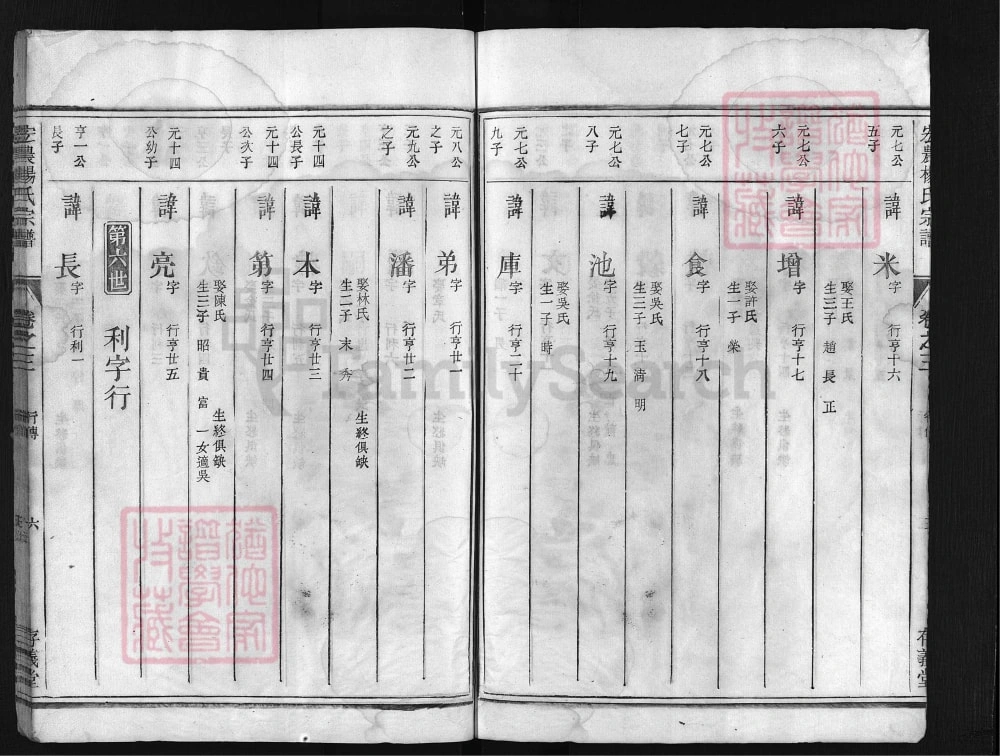 宏農楊氏宗譜 卷之三 存義堂
元七公五子
諱米 字 行亨十六
娶王氏
生三子 趙 長 正
元七公六子
諱增 字 行亨十七
娶許氏
生一子 榮
元七公七子
諱食 字 行亨十八
娶吳氏
生三子 玉 淸 明
元七公八子
諱池 字 行亨十九
娶吳氏
生一子 時
元七公九子
諱庫 字 行亨二十
元八公之子
諱弟 字 行亨廿一
元九公之子
諱潘 字 行亨廿二
娶林氏 生終俱缺
生二子 末 秀
元十四公長子
諱本 字 行亨廿三
元十四公次子
諱第 字 行亨廿四
娶陳氏 生終俱缺
生三子 昭 貴 富 一女適吳
元十四公幼子
諱亮 字 行亨廿五
第六世 利字行
亨一公長子
諱長 字 行利一
宏農楊氏宗譜 卷之三 行傳 六 存義堂
FamilySearch